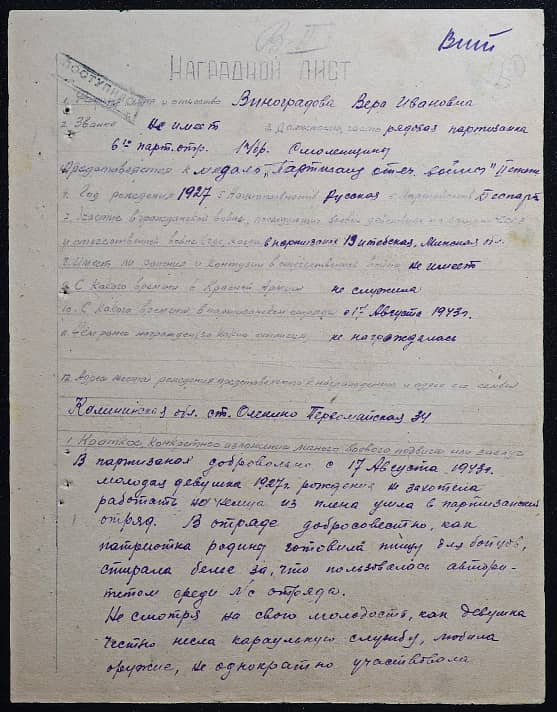 В III
Вий
НАГРАДНОЙ ЛИСТ
1. Фамилия имя и отчество Виноградова Вера Ивановна
2. Звание Не имеет 3. Должность, часть рядовая партизанка
6го парт. отр. 1ч бр. Смоленщину
Представляется к медали "Партизану отеч. войны" II степени
4. Год рождения 1927 5 Национальность Русская 6 Партийность Беспарт
7. Участие в гражданской войне, последующих боевых действиях по защите СССР
и отечественной войне (где, когда) в партизанах Витебская, Минская обл.
8. Имеет ли ранения и контузии в отечественной войне не имеет
9. С какого времени в Красной Армии не служила
10. С какого времени в партизанском отряде с 17 Августа 1943г.
11. Чем ранее награжден (за какие отличия) не награждалась
12. Адрес места рождения представляемого к награждению и адрес его семьи
Калининская обл. ст. Оленино Первомайская 34
1. Краткое конкретное изложение личного боевого подвига или заслуг
В партизанах добровольно с 17 Августа 1943г.
молодая девушка 1927г. рождения не захотела
работать на немца из плена ушла в партизанский
отряд. В отряде добросовестно, как
патриотка родину готовила пищу для бойцов,
стирала белье за, что пользовалась автори-
тетом среди л/с отряда.
Не смотря на свою молодость, как девушка
честно несла караульную службу, любила
оружие, не однократно участвовала